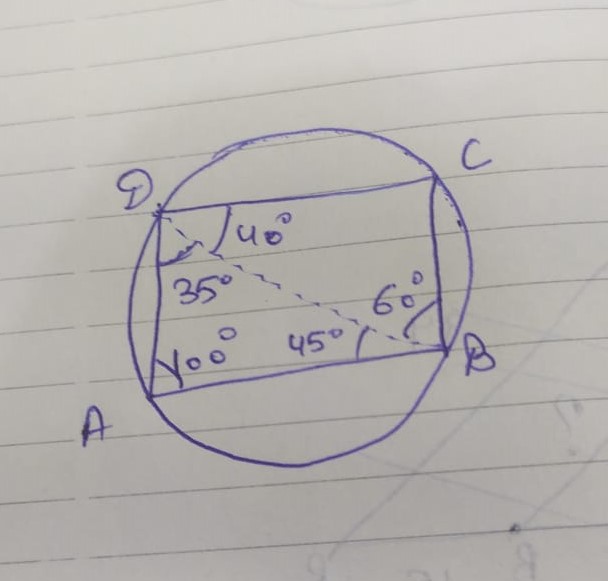 D
C
40°
35°
60°
100°
45°
B
A